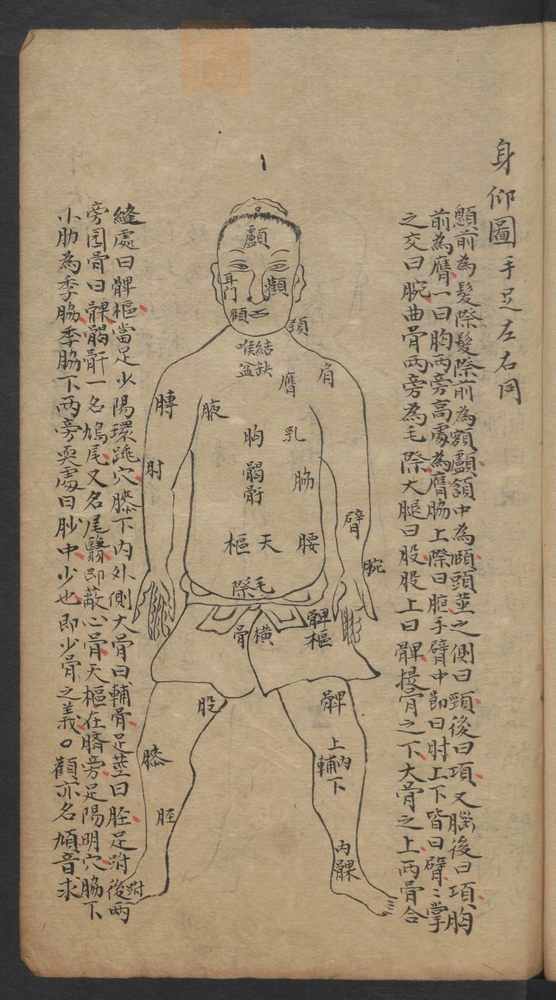 身仰圖手足左右同
顖前為髮際髮際前為額顱頟中為頄頭莖之側曰頸後曰項又腦後曰項胸
前為膺一曰胸兩旁高處為膺脇上際曰胠手臂中節曰肘上下皆曰臂〻掌
之交曰腕曲骨兩旁為毛際大腿曰股股上曰髀揵骨之下大骨之上兩骨合
縫處曰髀樞當足少陽環跳穴膝下內外側大骨曰輔骨足莖曰胫足跗後兩
旁圓骨曰髁𩩲骭一名鳩尾又名尾翳即蔽心骨天樞在臍旁足陽明穴脇下
小肋為季脇季脇下兩旁耎處曰䏚中少也即少骨之義。顴亦名頄音求
顱
耳門
顴
頄
頚
結喉
缺盆
膺
肩
膊
腋
胸
乳
𩩲骭
脇
肘
臂
天樞
腰
腕
毛際
橫骨
髀樞
股
髀
膝
上內下輔
胫
內髁
跗